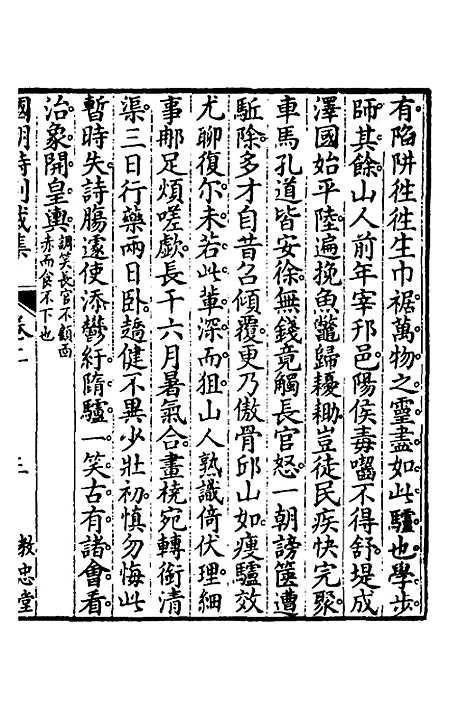 有陷阱徃徃生巾裾萬物之靈盡如此驢也學步
師其餘山人前年宰邘邑陽侯毒囓不得舒堤成
澤國始平陸遍挽魚鼈歸耰耡豈徒民疾快完聚
車馬孔道皆安徐無錢竟觸長官怒一朝謗篋遭
駈除多才自昔召傾覆更乃傲骨邱山如瘦驢效
尤聊復尔未若此軰深而狙山人熟識倚伏理細
事那足煩嗟歔長干六月暑氣合畫橈宛轉銜清
渠三日行藥兩日卧趫健不異少壯初慎勿悔此
暫時失詩腸遽使添鬱紆隋驢一笑古有諸會看
治象開皇輿調笑長官不顧面赤而食不下也
國朝詩別裁集
卷二
三
教忠堂